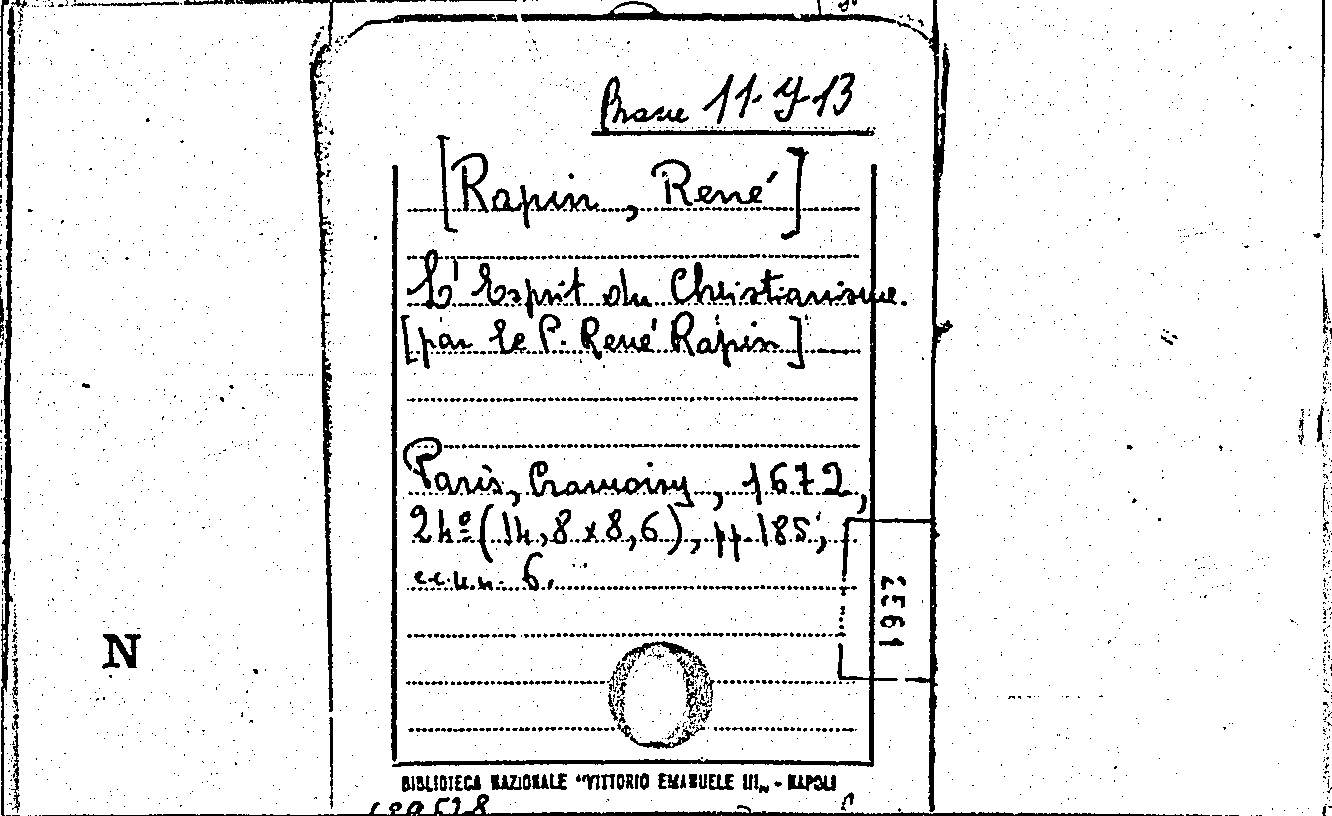 11-J-13
[Rapin, René]
L'Esprit du Christianisme.
[par le P. René Rapin]
Paris, Cramoisy, 1672,
24º (14,8 x 8,6), pp. 185;
cc.n.n. 6.
25561
N
BIBLIOTECA NAZIONALE "VITTORIO EMANUELE III„ - NAPOLI